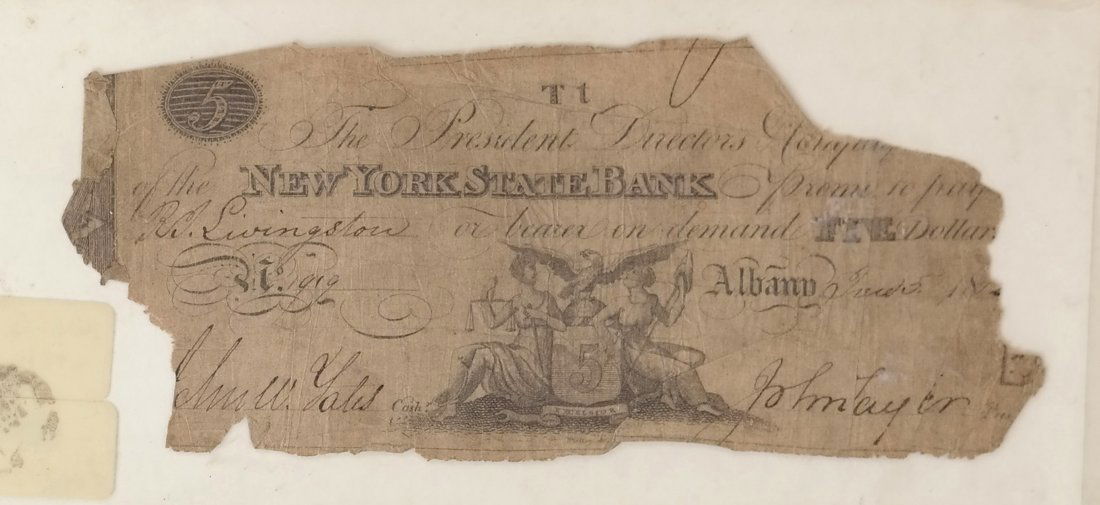 5
T t
The President Directors & Company
of the NEW YORK STATE BANK promise to pay
R. Livingston or bearer on demand FIVE Dollars
No. 919 Albany
5
EXCELSIOR
John W. Yates Cash.r